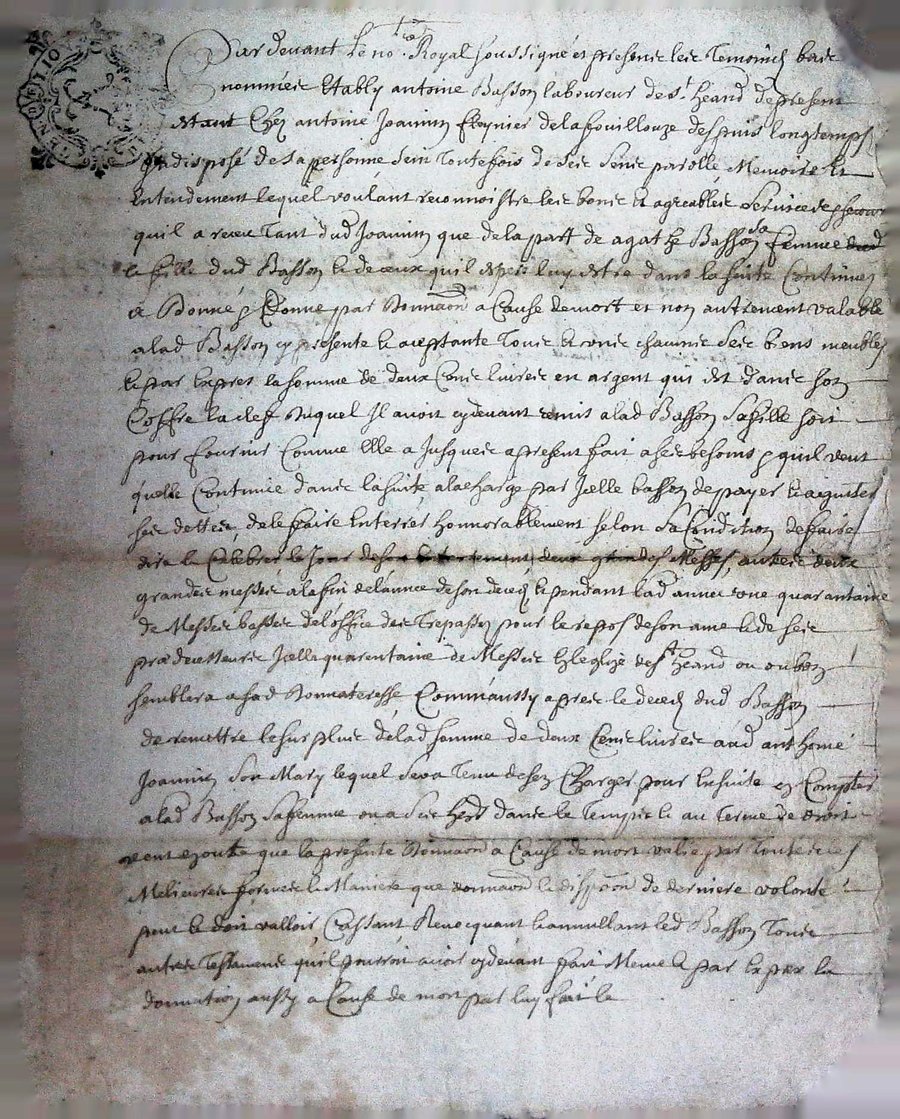 Pardevant le no.re Royal soussigné et presents les Temoings bas
nommés Estably antoine Basson laboureur de st heand de present
estant Chez antoine Joannin de la fouillouze despuis longtemps
Indisposé de sa personne, sein Toutefois de ses sens parolle, Memoire et
Entendement lequel voulant reconnoistre les bons et agreables services et secours
quil a receu Tant dud Joannin que de la part de agathe Basson sa femme
et fille dud Basson et de ceux quil espere luy estre dans la suitte Continues
a Donné et Donne par Donnaon a Cause de mort et non autrement valable
a lad Basson cy presente et aceptante Tous et uns chascuns ses biens meubles
et par Expres la somme de deux Cens livres en argent qui est dans son
Coffre la clef duquel Il avoit cydevant remis a lad Basson sa fille soit
pour fournir Comme Elle a Jusques apresent fait a ses besoins et quil veut
quelle Continue dans la suite, a la charge par Icelle basson de payer et aquiter
ses dettes, de le faire Enterrer honnorablement selon sa Condition de faire
dire et Celebrer le Jour de son Enterrement deux grandes Messes, autres deux
grandes messes a la fin de lannée de son deces et pendant lad année une quarantaine
de Messes basses de loffice des Trepasses pour le repos de son ame et de ses
predecesseurs Icelle quarentaine de Messes En leglize de st heand ou ou bon
semblera a sad donnateresse, Comm'aussy apres le deces dud Basson
de remettre le surplus de lad somme de deux Cens livres aud anthoine
Joannin son Mary lequel sera Tenu de sen Charger pour Ensuite en Compter
a lad Basson sa femme ou a ses hers dans le Temps et au Terme de droit
veut ej oute que la presente Donnaon a Cause de mort valie par Toutes les
Melieures formes et Maniere que donnaon et dispoon de derniere volonté
peut et doit valloir, Cassant Revocquant et annullant led Basson Tous
autres Testaments quil pourroit avoir cydevant fait Meme et par Expres la
donnation aussy a Cause de mort par luy faite